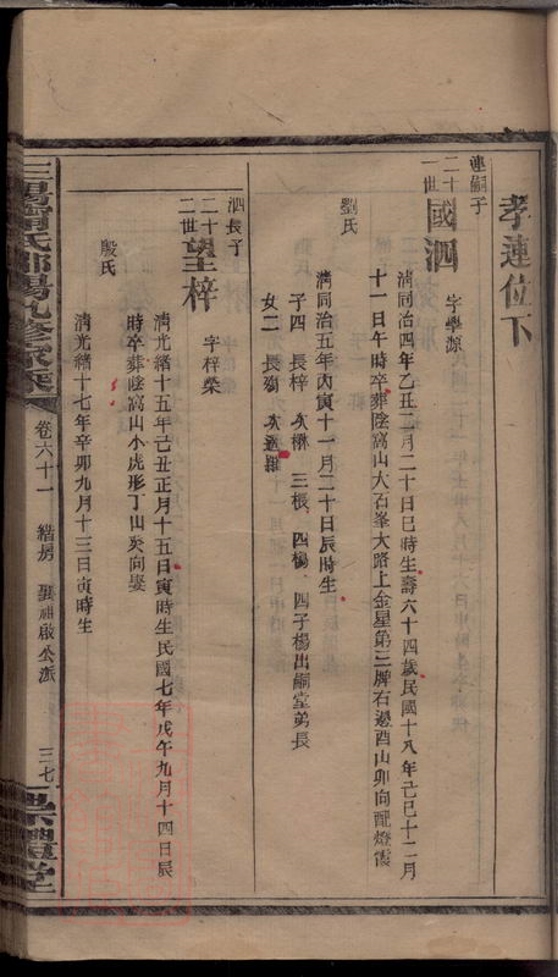 孝連位下
連嗣子
二十
一世
國泗
字學源
淸同治四年乙丑二月二十日巳時生壽六十四歲民國十八年己巳十二月
十一日午時卒葬陰窩山大石峯大路上金星第三牌右邊酉山卯向配燈霞
劉氏
淸同治五年丙寅十一月二十日辰時生
子四 長梓 次楙 三棖 四楊 四子楊出嗣堂弟長
女二 長殤 次適羅
泗長子
二十
二世
望梓
字梓榮
淸光緖十五年己丑正月十五日寅時生民國七年戊午九月十四日辰
時卒葬陰窩山小虎形丁山癸向娶
殷氏
淸光緖十七年辛卯九月十三日寅時生
三陽甯氏邵陽九修家乘
卷六十一
緖房
啟公派
三七
堂